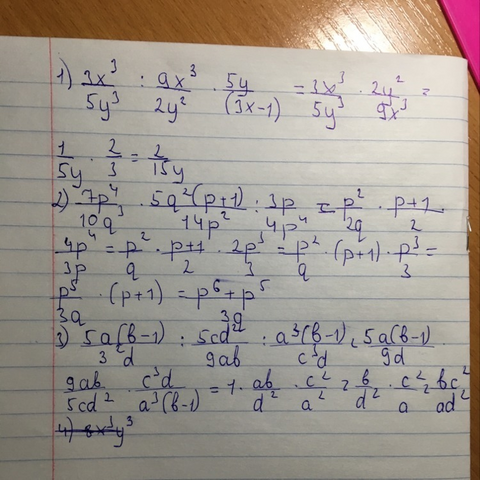 1) 3x³/5y³ : 9x³/2y² · 5y/(3x-1) = 3x³/5y³ · 2y²/9x³ =
1/5y · 2/3 = 2/15y
2) 7p⁴/10q³ · 5q²(p+1)/14p² : 3p/4p⁴ = p²/2q · p+1/2
4p⁴/3p = p²/q · p+1/2 · 2p³/3 = p²/q · (p+1) · p³/3 =
p⁵/3q · (p+1) = p⁶+p⁵/3q
3) 5a(b-1)/3²d : 5cd²/9ab : a³(b-1)/c³d = 5a(b-1)/9d ·
9ab/5cd² · c³d/a³(b-1) = 1 · ab/d² · c²/a² = b/d² · c²/a = bc²/ad²
4) 8x³y³